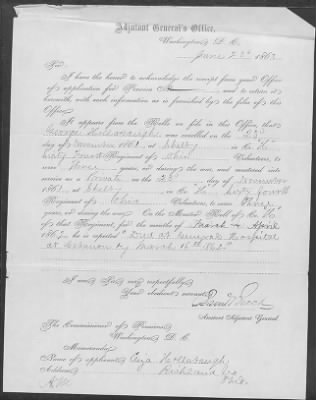 Adjutant General's Office,
Washington, D. C.
June 23d 1863
Sir:
I have the honor to acknowledge the receipt from your Office
of application for Pension No. and to return it
herewith, with such information as is furnished by the files of this
Office.
It appears from the Rolls on file in this Office, that
George was enrolled on the 23d
day of December 1861, at Shelby in Co. "H"
Sixty Fourth Regiment of Ohio Volunteers, to
serve three years, or during the war, and mustered into
service as a Private on the day of December
1861, at Shelby in Co. "H" Sixty fourth
Regiment of Ohio Volunteers, to serve three
years, or during the war. On the Muster Roll of Co. "H"
of that Regiment, for the months of March & April
1862, he is reported "Died at General Hospital
at Lebanon Ky March 16th 1862."
I am, Sir, very respectfully,
Your obedient servant,
Assistant Adjutant General
The Commissioner of Pensions,
Washington, D. C.
Memoranda:
Name of applicant, Eliza
Address, Richland Co
Ohio